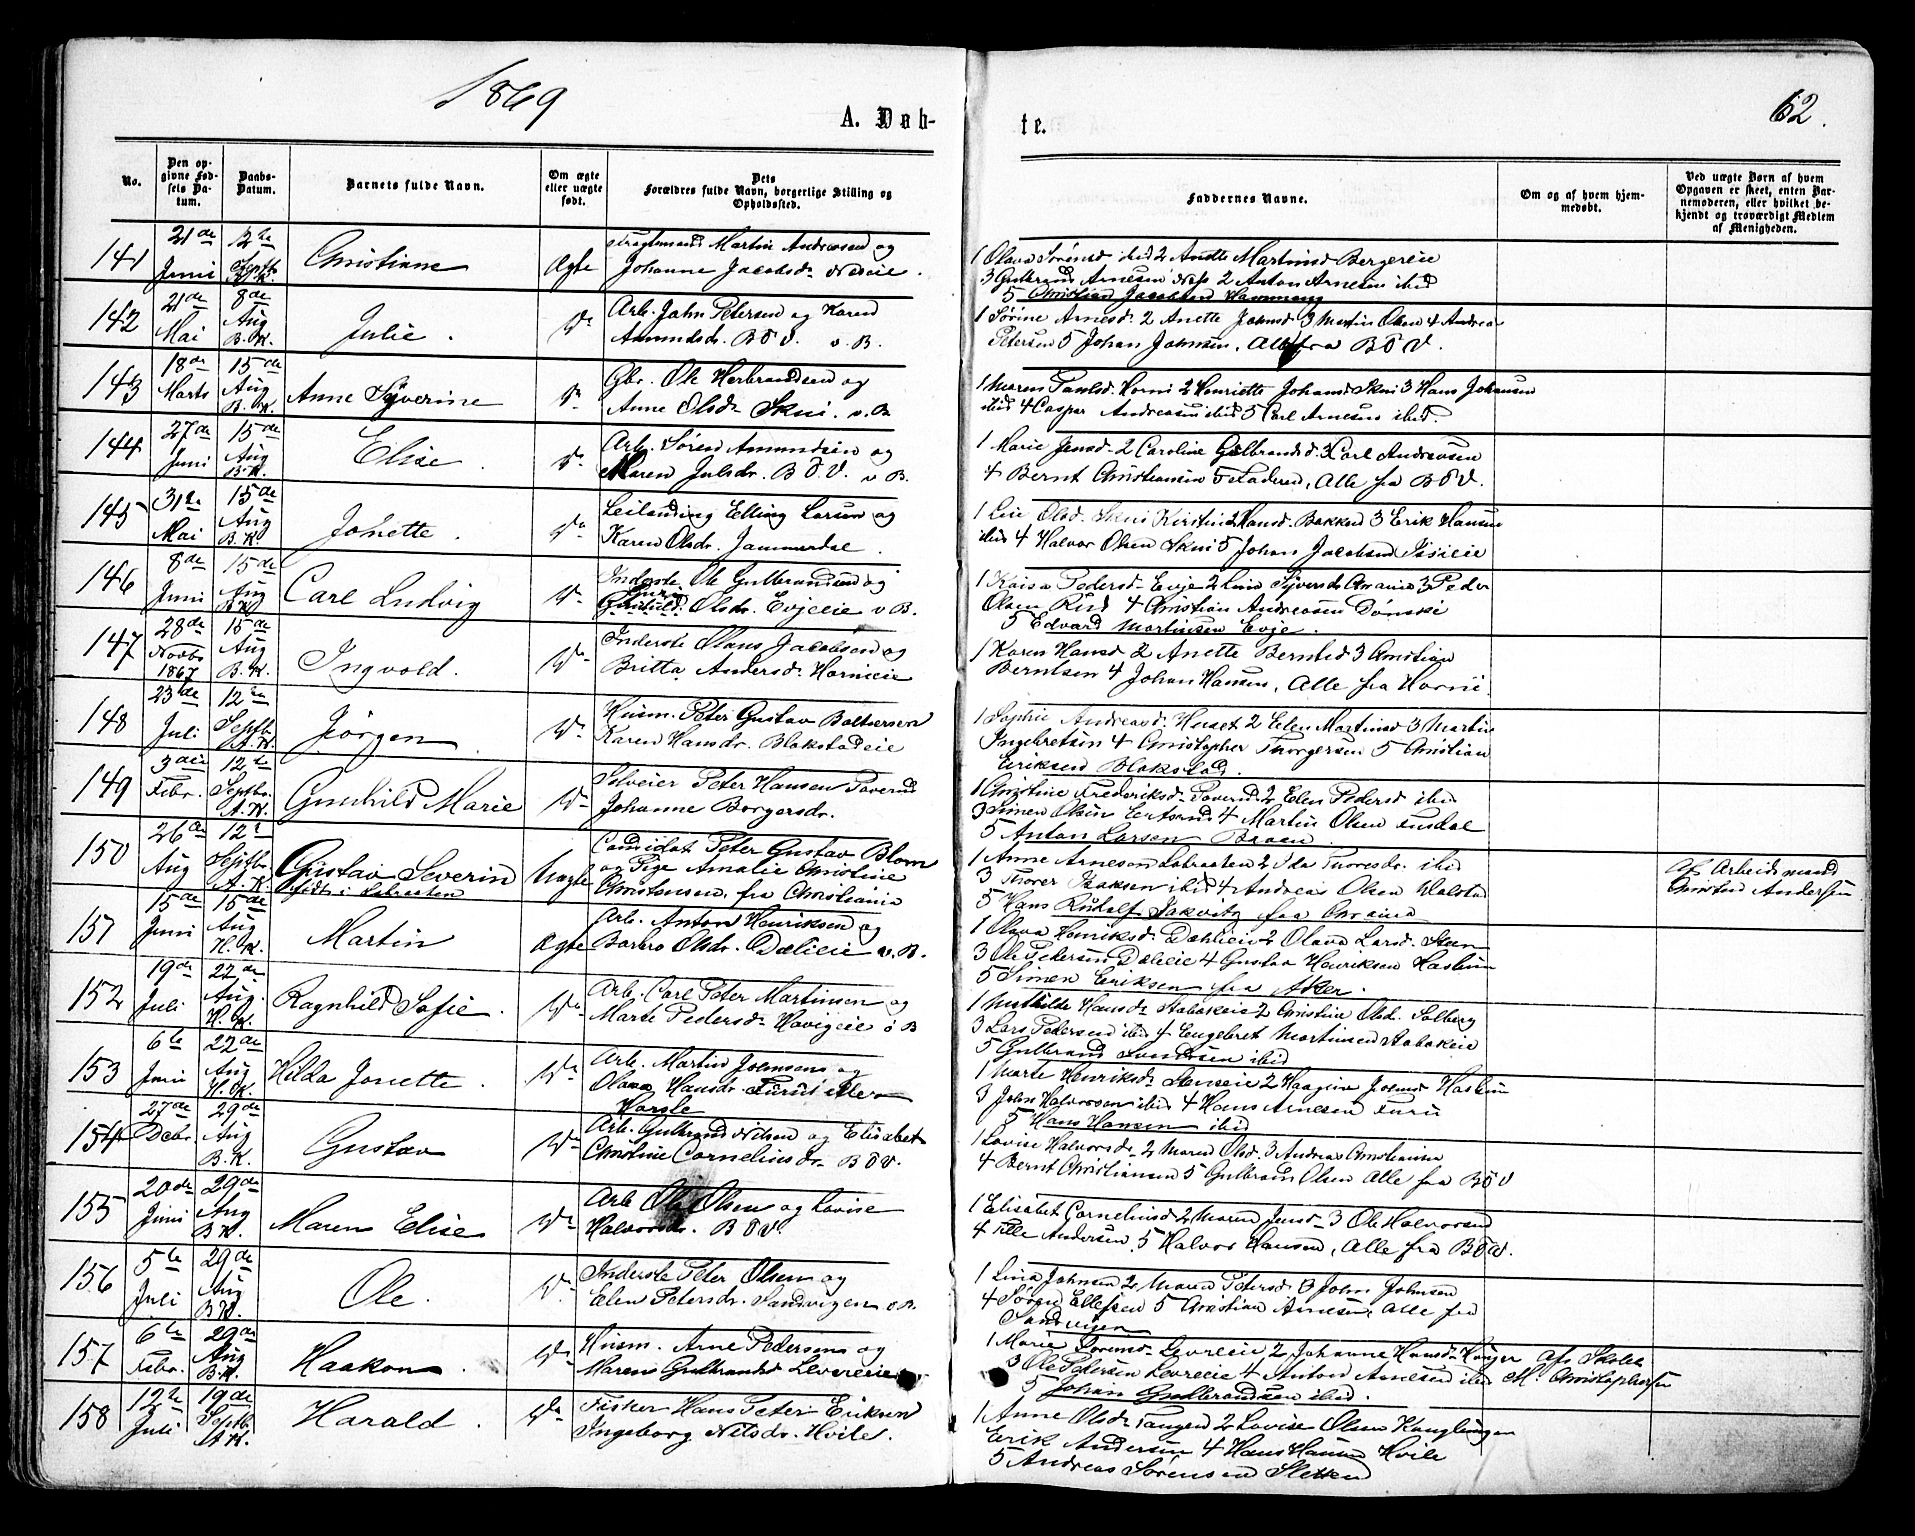 1869
A. Døb-
te.
62.
No.
Den op-
givne Fød-
sels Da-
tum.
Daabs-
Datum.
Barnets fulde Navn.
Om ægte
eller uægte
født.
Dets
Forældres fulde Navn, borgerlige Stilling og
Opholdssted.
Faddernes Navne.
Om og af hvem hjem-
medøbt.
Ved uægte Børn af hvem
Opgaven er skeet, enten Bar-
nemoderen, eller hvilket be-
kjendt og troværdigt Medlem
af Menigheden.
141
21de
Juni
12te
Septb.
Christiane
Ægte
Martin Andresen og
Johanne Jacobsdr. Næseie.
1 Olava Sørensd ibid 2 Anette Martinsd Bergereie
3 Gulbrand Arnesen Næs 2 Anton Arnesen ibid
5 Christian Jacobsen
142
21de
Mai
8de
Aug
B.K.
Julie.
Do
Arb. John Petersen og Karen
Amundsdr. B Ö V. v. B.
1 Sørine Arnesdr. 2 Anette Johnsd 3 Martin Olsen 4 Andrea
Petersen 5 Johan Johnsen, Alle fra B Ö V.
143
18de
Marts
15de
Aug
B.K.
Anne Syverine
Do
Gbr. Ole Herbrandsen og
Anne Olsdr. Skui. v. B.
1 Maren Paulsd. Horni 2 Henriette Johansd Skui 3 Hans Johansen
ibid 4 Casper Andreasen ibid 5 Carl Arnesen ibid.
144
27de
Juni
15de
Aug
B.K.
Elise.
Do
Arb. Søren Amundsen og
Maren Julsdr. B Ö V. v B.
1 Marie Jensd. 2 Caroline Gulbrandsd. 3 Carl Andreasen
4 Bernt Christiansen 5 Faderen, Alle fra B Ö V.
145
31te
Mai
15de
Aug
B.K.
Jonette.
Do
Leilænding Elling Larsen og
Karen Olsdr. Jammerdal.
1 Lise Olsd. Skui Kirstine 2 Hansd. Bakken 3 Erik Hansen
ibid 4 Halvor Olsen Skui 5 Johan Jacobsen
146
8de
Juni
15de
Aug
B.K.
Carl Ludvig
Do
Inderste Ole Gulbrandsen og
Olsdr. Evjeie v B.
1 Kaisa Pedersd. Evje 2 Lina Syversdr. 3 Peder
Olsen Rud 4 Christian Andreasen Dønski
5 Edvard Martinsen Evje.
147
28de
Novbr
1867
15de
Aug
B.K.
Ingvold.
Do
Inderste Hans Jacobsen og
Britta Andersd. Hornieie
1 Karen Hansd 2 Anette Berntsd 3 Christian
Berntsen 4 Johan Hansen, Alle fra Horni.
148
23de
Juli
12te
Septb.
A.K.
Jørgen.
Do
Husm. Peter Gustav Baltsersen
Karen Hansdr. Blakstadeie
1 Sophie Andreasd. Huset 2 Elen Martinsd 3 Martin
Ingebretsen 4 Christopher Thorgersen 5 Christian
Eriksen Blakstad.
149
3die
Febr.
12te
Septbr.
A.K.
Gunhild Marie
Do
Selveier Peter Hansen Toverud
Johanne Borgersdr.
1 Christine Frederiksd. Toverud 2 Elen Pedersd ibid
3 Simen Olsen 4 Martin Olsen
5 Anton Larsen
150
26de
Aug
12te
Septbr.
A.K.
Gustav Severin
født i Labraaten
Uægte
Candidat Peter Gustav Blom
og Pige Amalie Christine
Christensen fra Christiania
1 Anne Arnesen Labraaten 2 Ida Thoresdr. ibid
3 Thorer Isaksen ibid 4 Andreas Olsen Valstad
5 Hans Rudolf
af Arbeidsmand
Christian Andersen
151
15de
Juni
15de
Aug
H.K.
Martin
Ægte
Arb. Anton Henriksen og
Barbro Olsdr. Dælieie v. B.
1 Olava Henriksd. Dæhlieie 2 Olava Larsd. Steen
3 Ole Petersen Dælieie 4 Gustav Henriksen Haslum
5 Simen Eriksen fra Asker.
152
19de
Juli
22de
Aug.
H.K.
Ragnhild Sofie.
Do
Arb. Carl Peter Martinsen og
Marte Pedersdr. Høvigeie ö B
1 Mathilde Hansd. Stabækeie 2 Christine Olsd. Solberg
3 Lars Pedersen ibid 4 Engebret Martinsen Stabækeie
5 Gulbrand ibid
153
6te
Juni
22de
Aug
H.K.
Hilda Jonette.
Do
Arb. Martin Joensen og
Olava Hansdr. Furu
1 Marte Henriksdr. Steneie 2 Joensd. Haslum
3 John Halvorsen ibid 4 Hans Arnesen Furu
5 Hans Hansen ibid
154
27de
Debr.
29de
Aug
B.K.
Gustav
Do
Arb. Gulbrand Nilsen og Elisabet
Christine Corneliusdr. B Ö V.
1 Lovise Halvorsdr. 2 Maren Olsd. 3 Andreas Christiansen
4 Bernt Christiansen 5 Gulbran Olsen Alle fra B Ö V
155
20de
Juni
29de
Aug
B.K.
Maren Elise
Do
Arb Ole Olsen og Lovise
Halvorsdr. B Ö V.
1 Elisabet Corneliusd 2 Maren Jensd. 3 Ole Halvorsen
4 Andersen. 5 Halvor Hansen, Alle fra B Ö V.
156
5te
Juli
29de
Aug
B.K.
Ole.
Do
Inderste Peter Olsen og
Elen Petersdr. Sandvigen v. B.
1 Lina Johnsen 2 Maren Petersd. 3 John Johnsen
4 Søren Ellefsen 5 Christian Arnesen, Alle fra
Sandvigen
157
6te
Febr.
29de
Aug
B.K.
Haakon.
Do
Husm. Arne Pedersen og
Maren Gulbrandsd Levreeie
1 Marie Sørensd. Levreeie 2 Johanne Hansd.
3 Ole Pedersen Levreeie 4 Anton Arnesen ibid
5 Johan Gulbrandsen ibid.
af
M. Christophersen
158
12te
Juli
19de
Septb.
A.K.
Harald.
Do
Fisker Hans Peter Eriksen
Ingeborg Nilsdr. Hvile.
1 Anne Olsdr. Tangen 2 Lovise Olsen Kunglungen
Erik Andersen 4 Hans Hansen Hvile
5 Andreas Sørensen Sletten